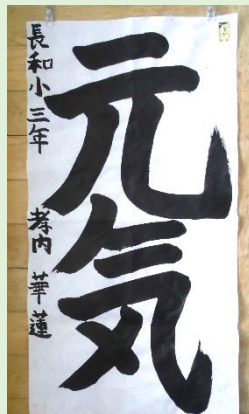 元気
長和小三年 孝内 華蓮